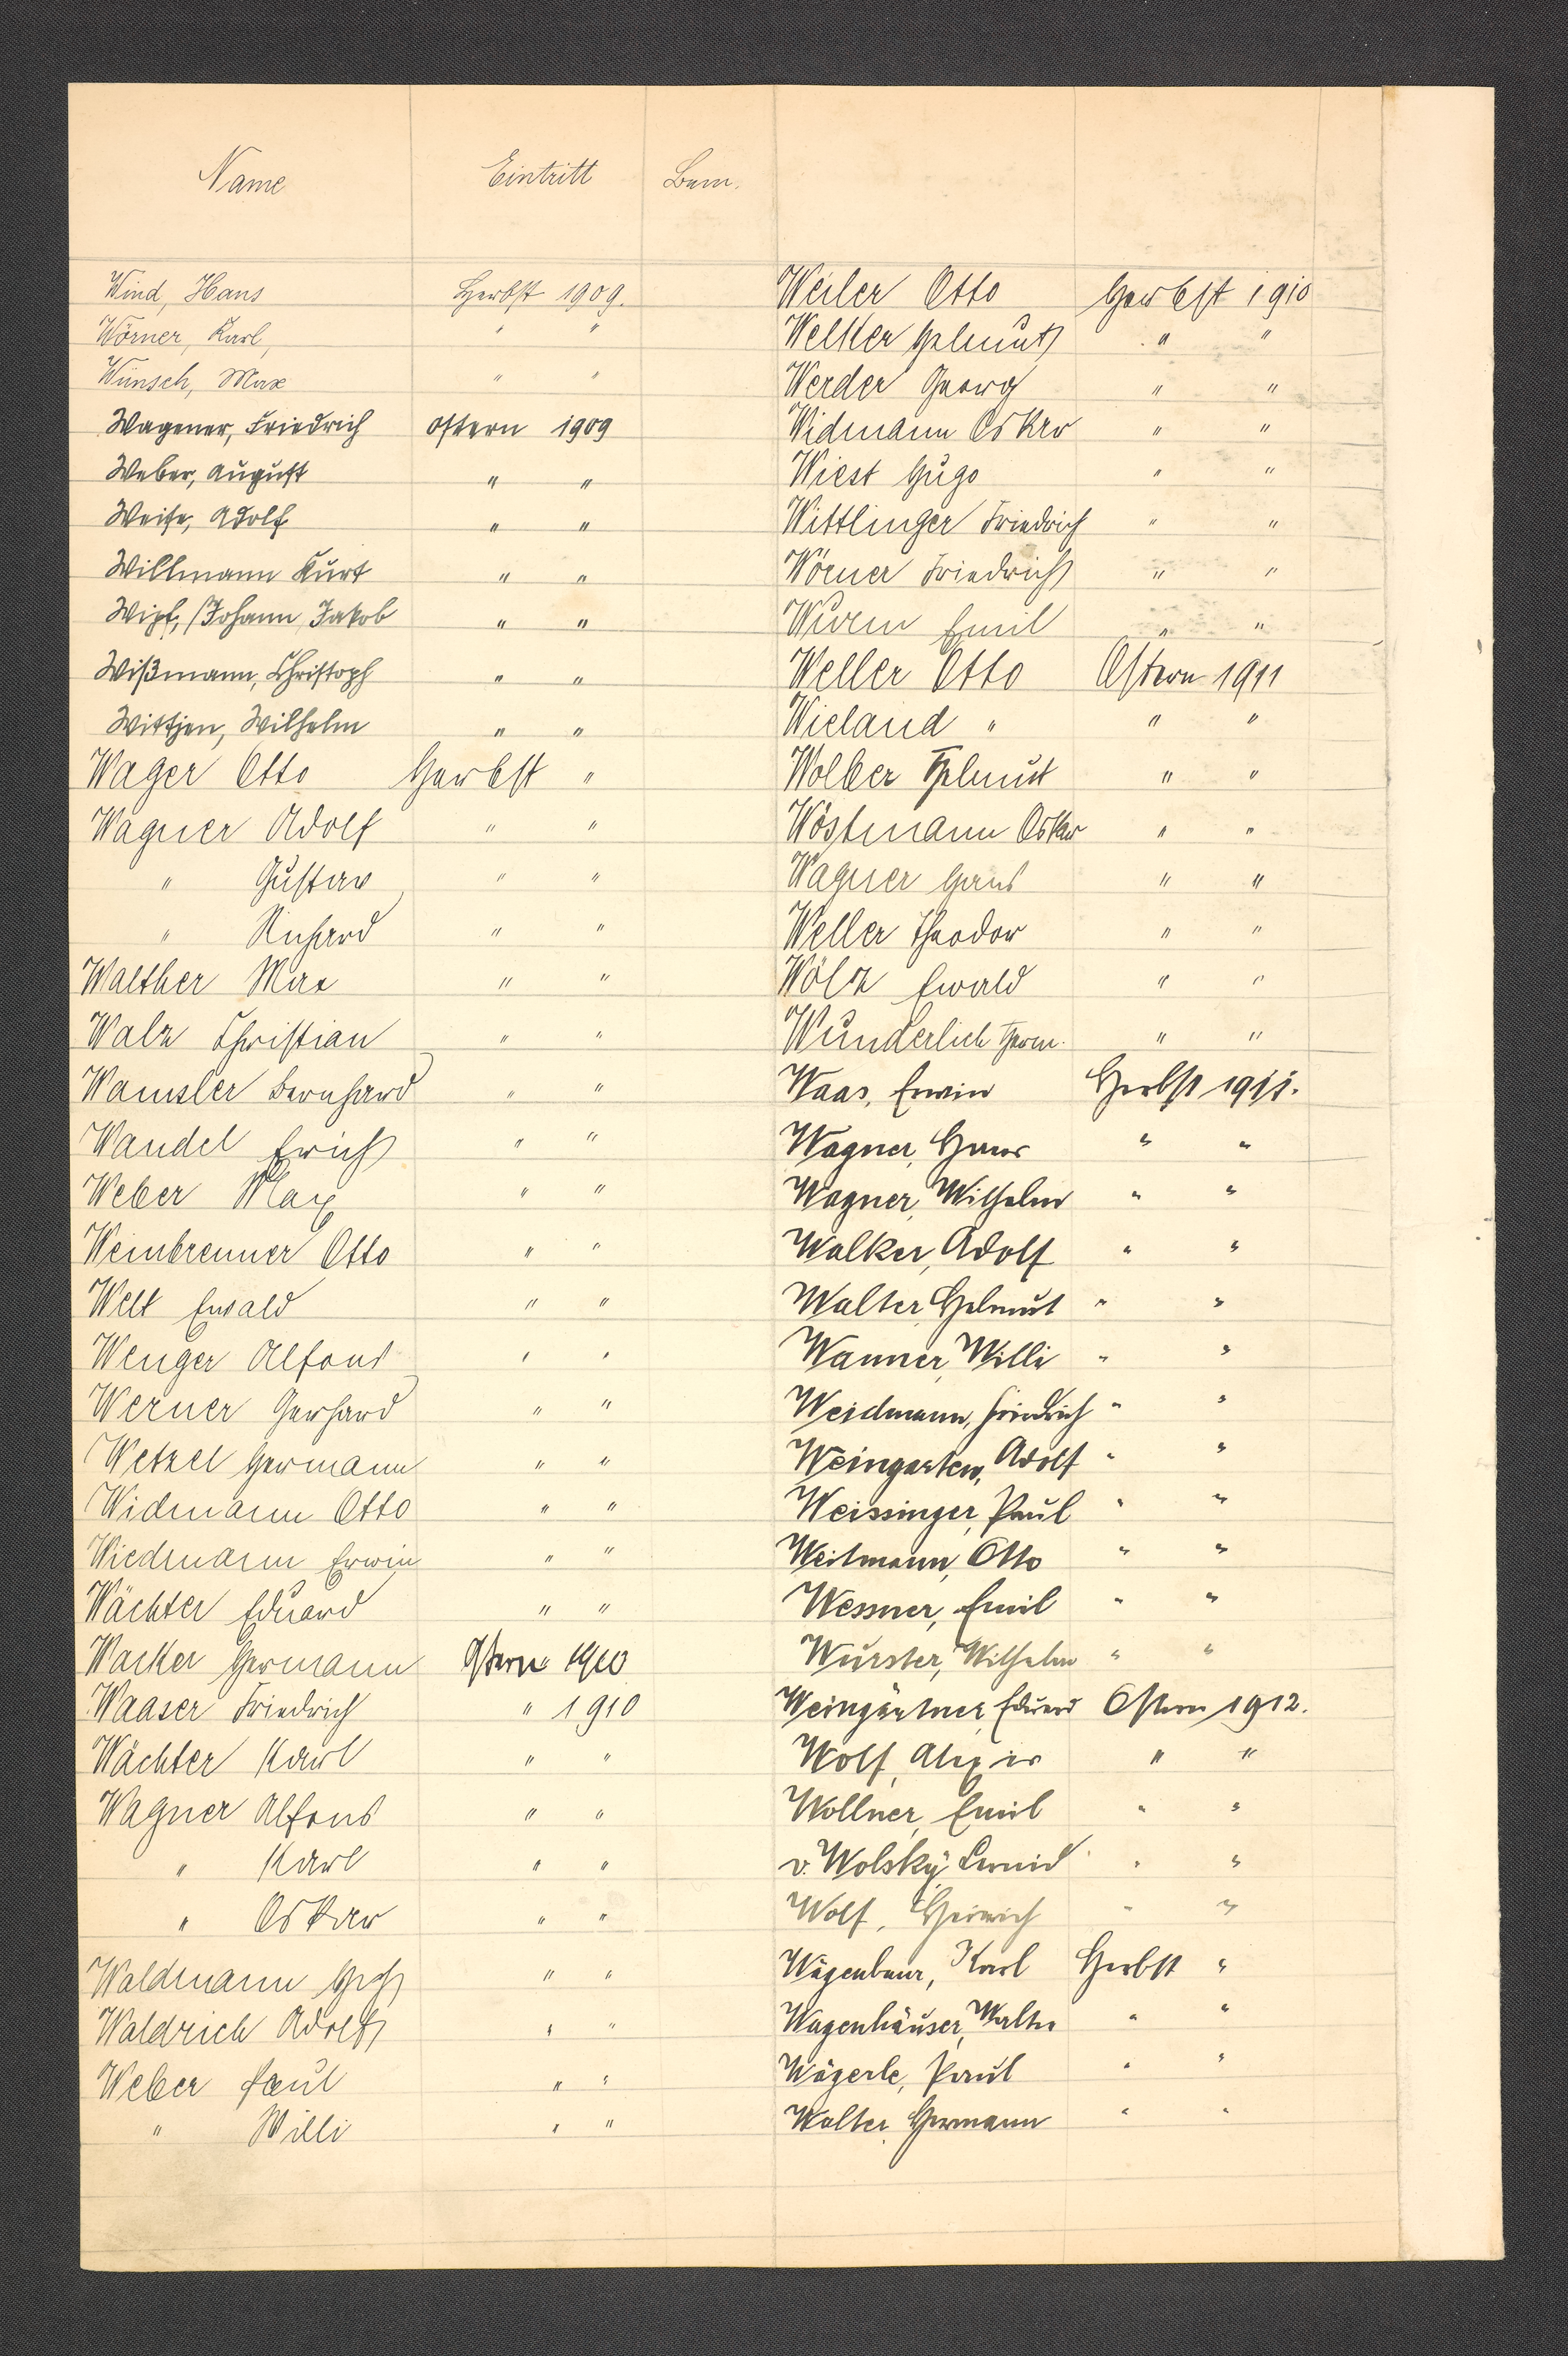 Name Eintritt Bem.
Wind, Hans Herbst 1909.
Wörner, Karl, " "
Wünsch, Max " "
Wagener, Friedrich Ostern 1909
Weber, August " "
Weise, Adolf " "
Willmann Kurt " "
Wipf, Johann Jakob " "
Wißmann, Christoph " "
Wittjen, Wilhelm " "
Wager Otto Herbst "
Wagner Adolf " "
" Gustav " "
" Richard " "
Walther Max " "
Walz Christian " "
Wamsler Bernhard " "
Wandel Erich " "
Weber Max " "
Weinbrenner Otto " "
Welt Ewald " "
Wenger Alfons " "
Werner Gerhard " "
Wetzel Hermann " "
Widmann Otto " "
Wiedmann Erwin " "
Wächter Eduard " "
Wacker Hermann Ostern 1910
Waaser Friedrich " 1910
Wächter Karl " "
Wagner Alfons " "
" Karl " "
" Oskar " "
Waldmann " "
Waldrich Adolf " "
Weber Paul " "
" Willi " "
Weiler Otto Herbst 1910
Welker Helmut " "
Werder Georg " "
Widmann Oskar " "
Wiest Hugo " "
Wittlinger Friedrich " "
Wörner Friedrich " "
Wurm Emil " "
Weller Otto Ostern 1911
Wieland " " "
Wolber Helmut " "
Wöstmann Oskar " "
Wagner Hans " "
Weller Theodor " "
Wölz Ewald " "
Wunderlich Herm. " "
Waas, Erwin Herbst 1911.
Wagner, Hans " "
Wagner, Wilhelm " "
Walker, Adolf " "
Walter, Helmut " "
Wanner, Willi " "
Weidmann, Friedrich " "
Weingarten, Adolf " "
Weissinger, Paul " "
Weitmann, Otto " "
Wessner, Emil " "
Wurster, Wilhelm " "
Weingärtner, Eduard Ostern 1912.
Wolf, " "
Wollner, Emil " "
v. Wolsky " "
Wolf, Heinrich " "
Wägenbaur, Karl Herbst "
Wagenhäuser, Walter " "
Wägerle, Paul " "
Walter, Hermann " "